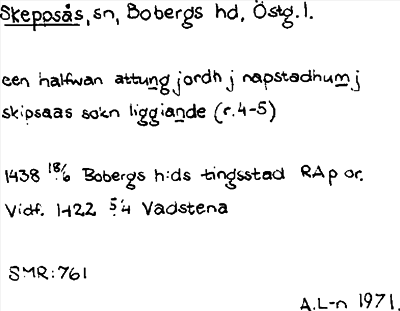 Skeppsås, sn, Bobergs hd, Östg.l.
een halfwan attung jordh j napstadhum j
skipsaas sokn liggiande (r.4-5)
1438 18/6 Bobergs h:ds tingsstad RAp or.
Vidf. 1422 5/4 Vadstena
SMR:761
A.L-n 1971.